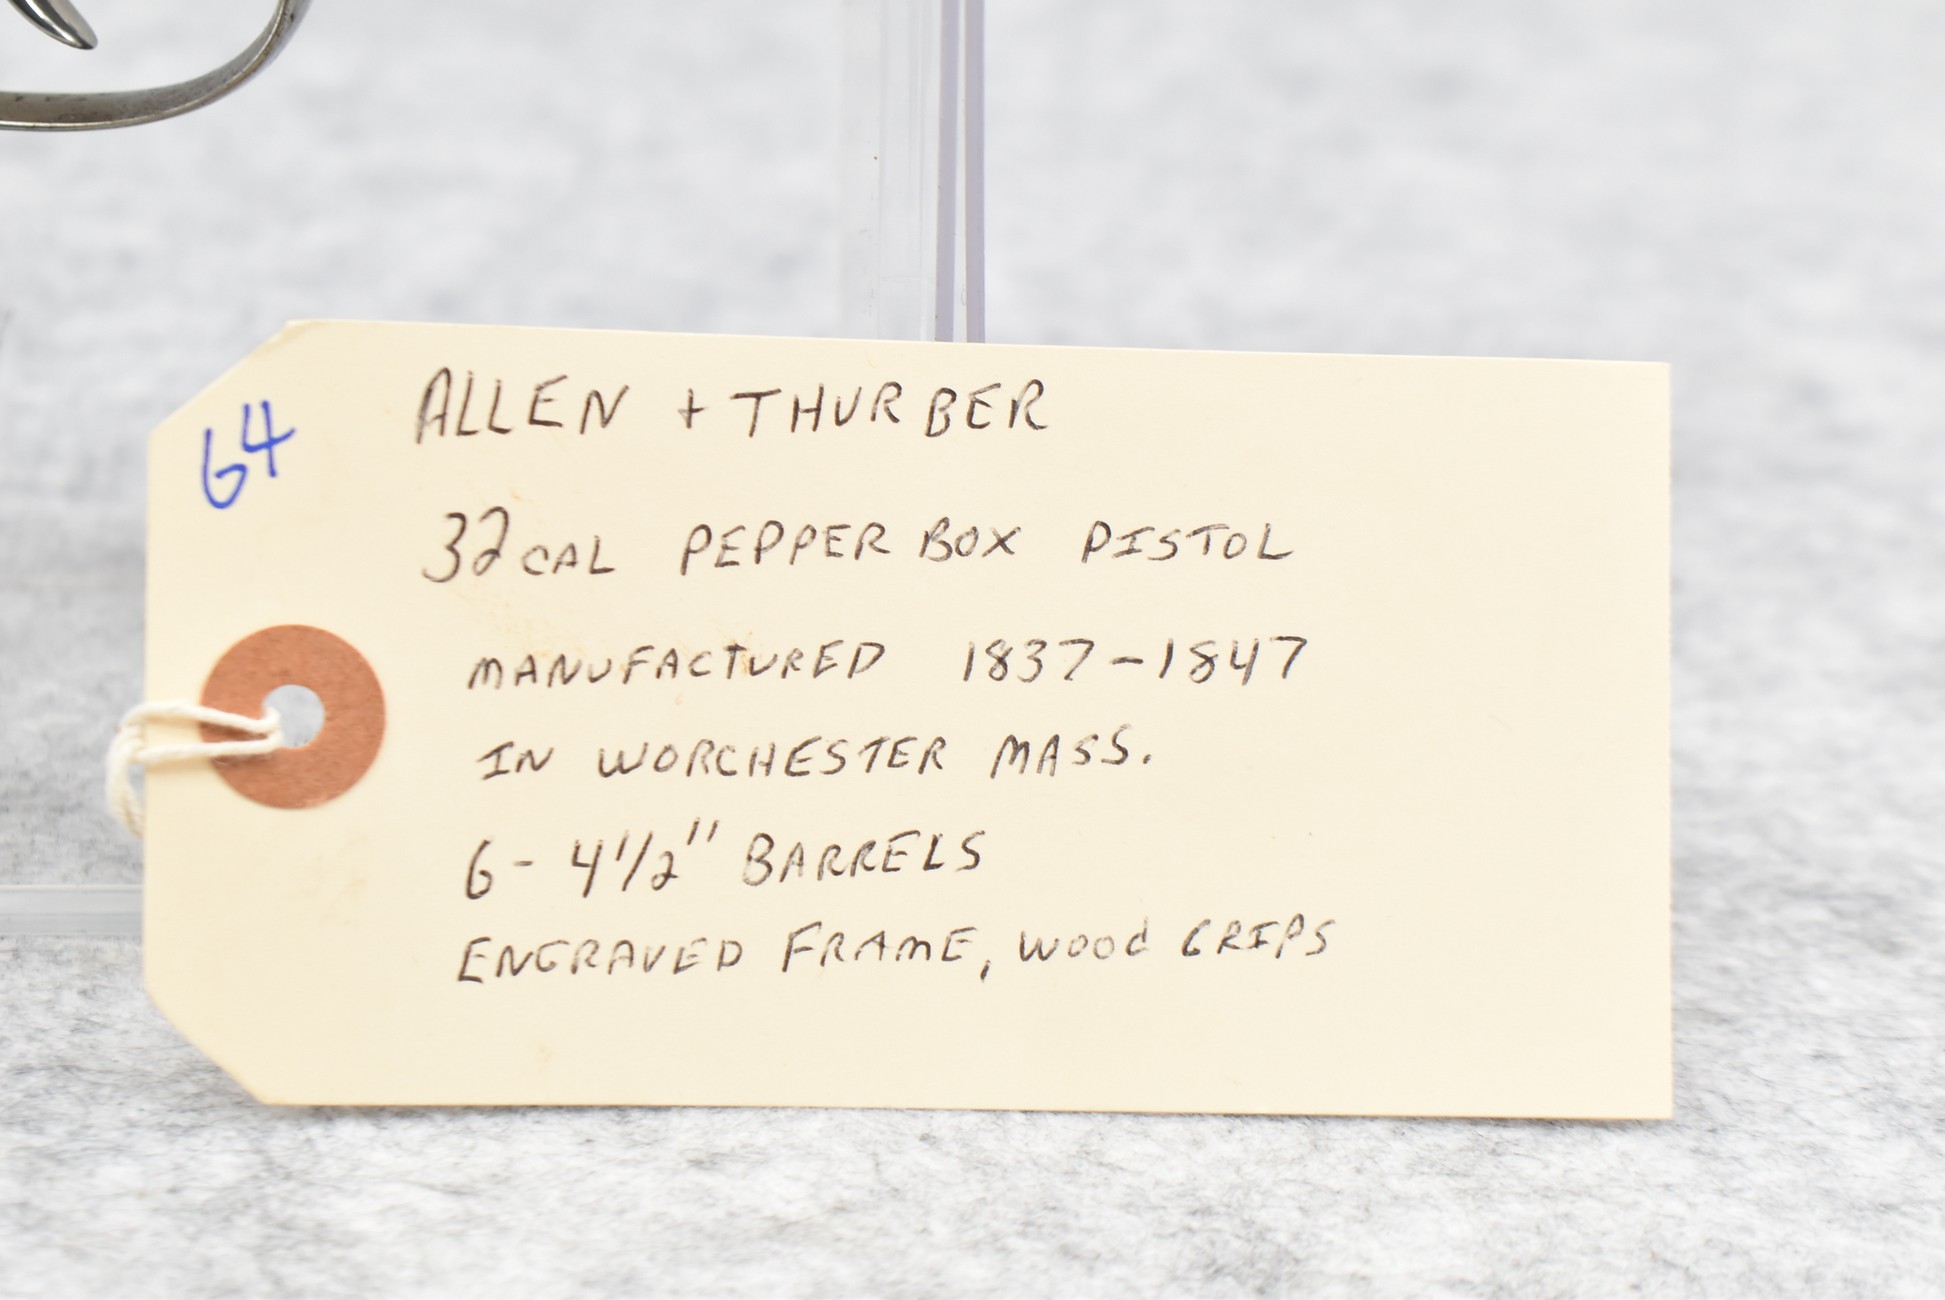 64
ALLEN + THURBER
32 CAL PEPPER BOX PISTOL
MANUFACTURED 1837-1847
IN WORCHESTER MASS.
6- 4 1/2" BARRELS
ENGRAVED FRAME, WOOD GRIPS